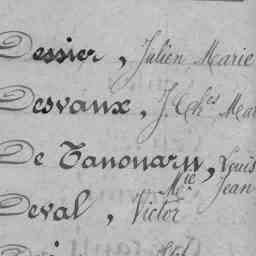 Dessier, Julien Marie
Desvaux, J. Ches Mar
De Tanouarn, Louis
Mie Jean
Deval, Victor